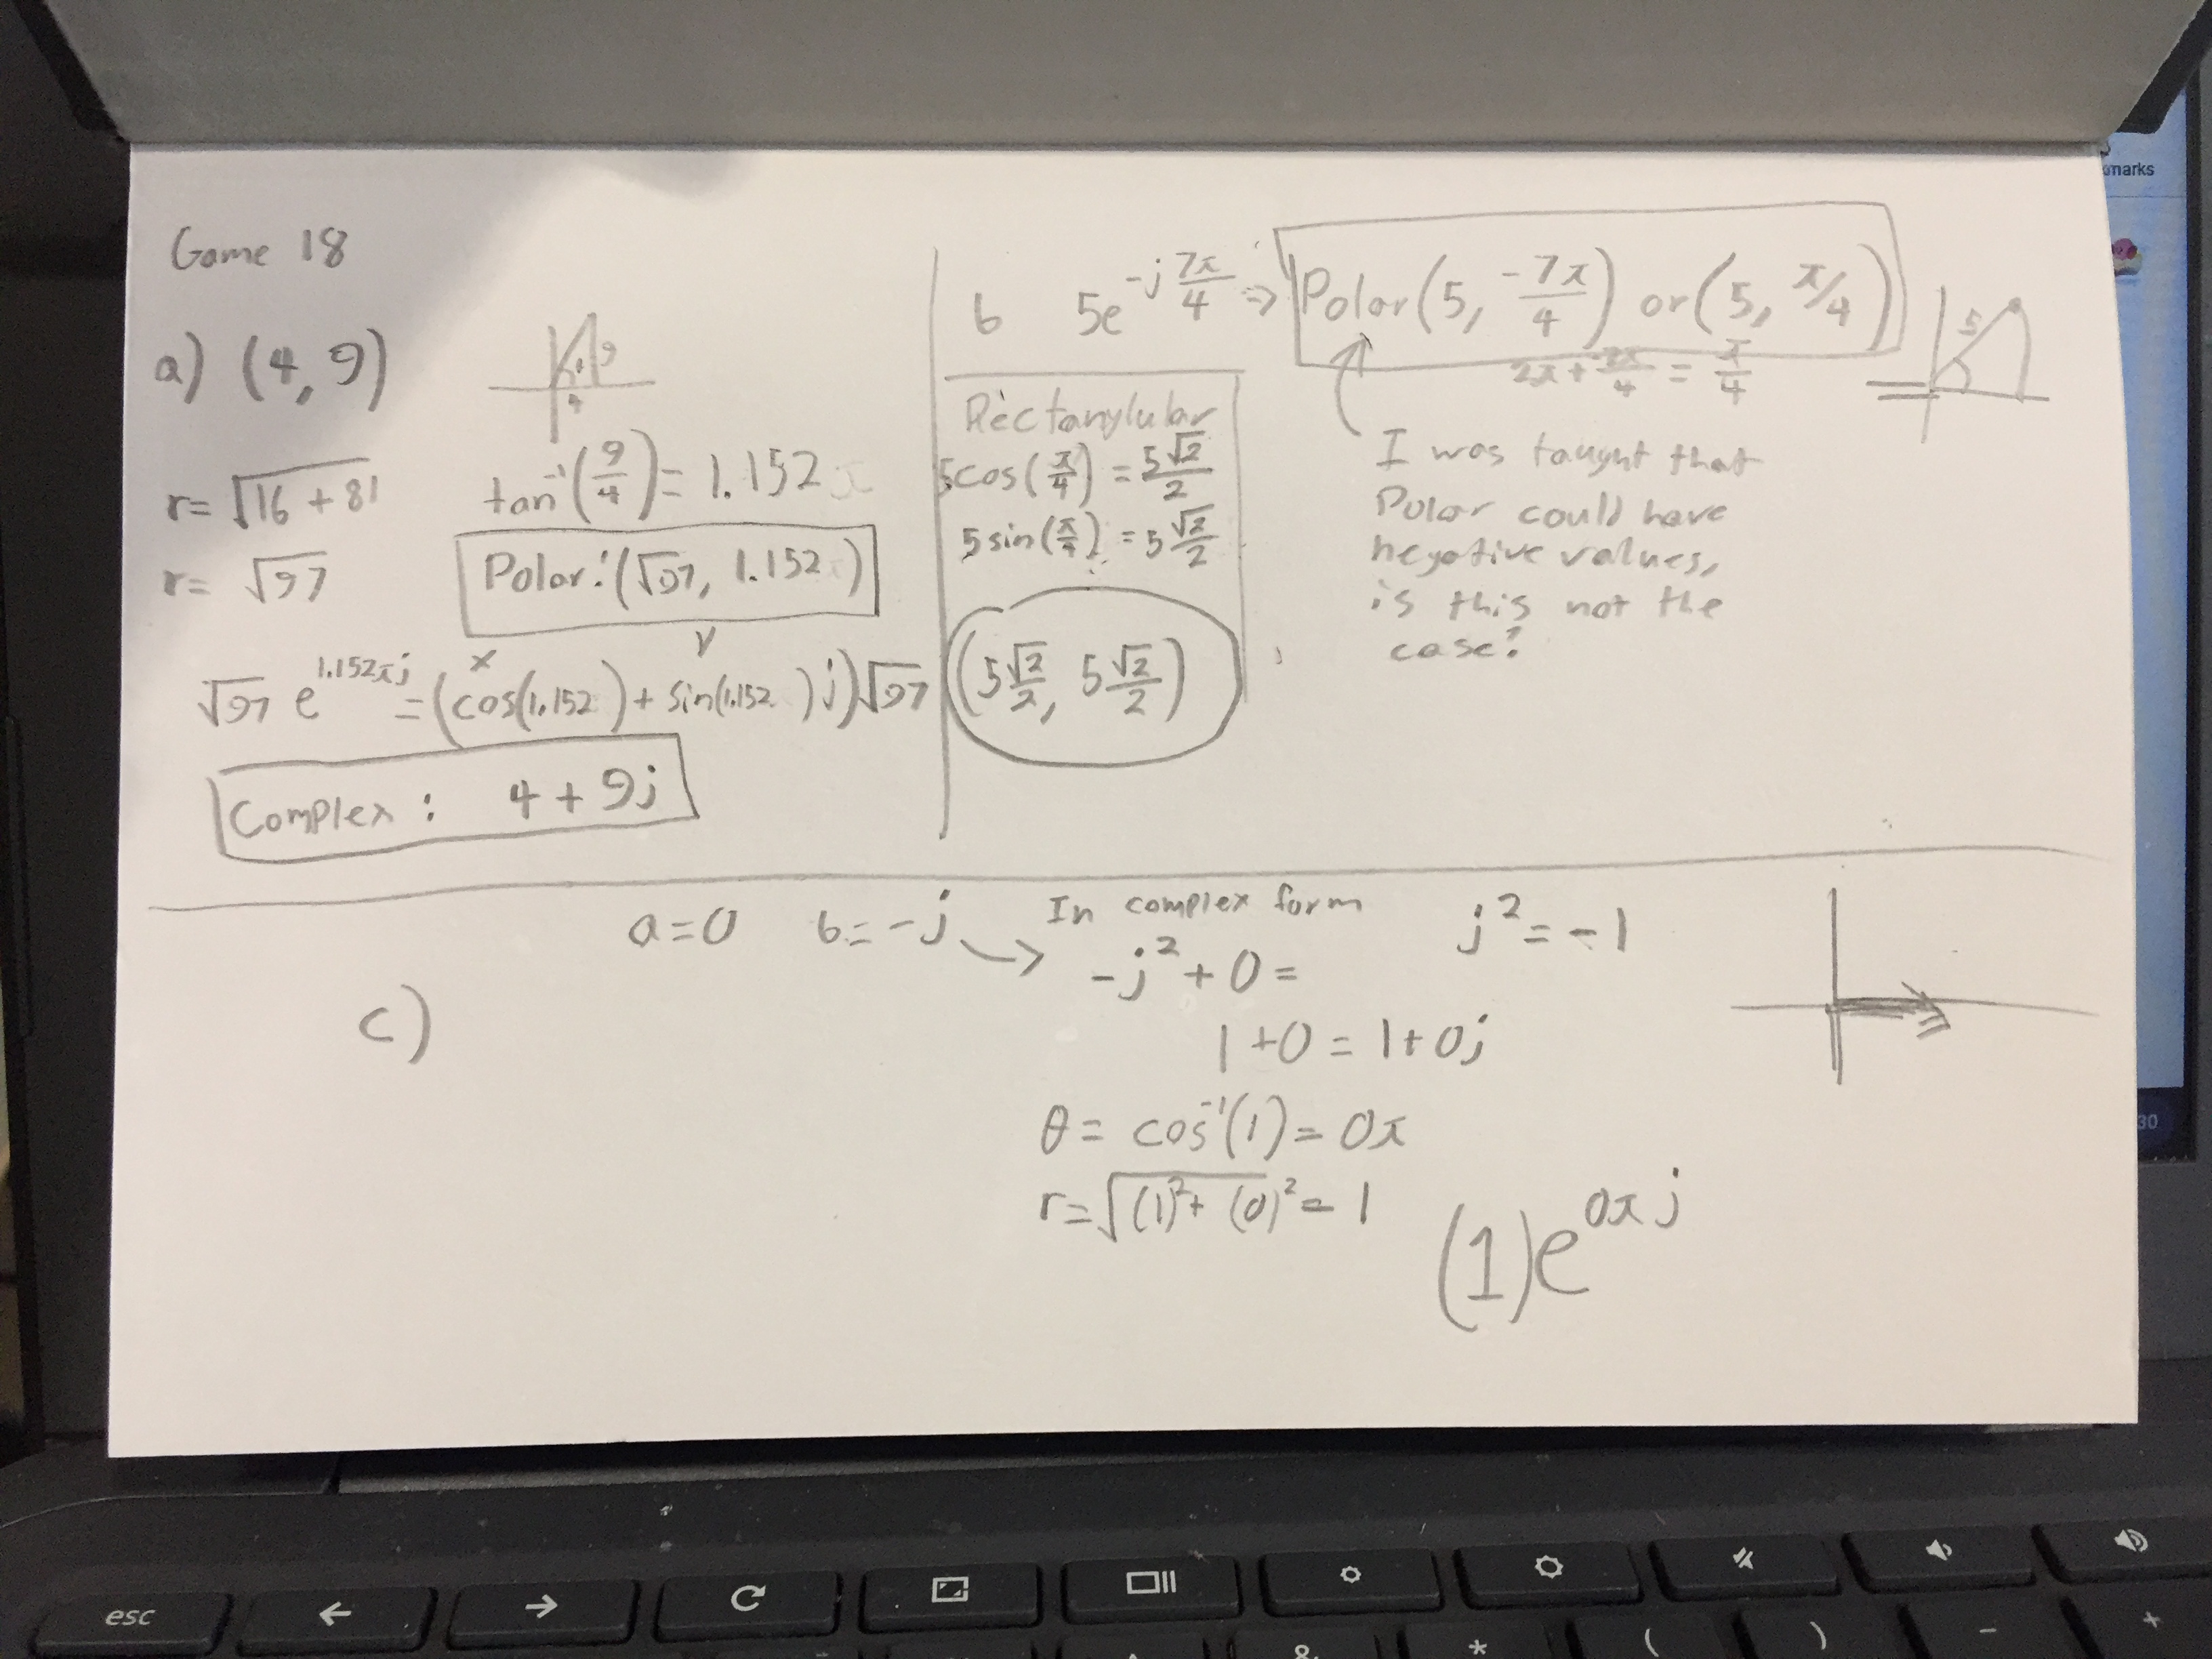 Game 18
a) (4, 9)
9
4
r= √16 + 81
r= √97
tan⁻¹(9/4) = 1.152
Polar: (√97, 1.152)
x
y
√97 e^1.152πj = (cos(1.152) + sin(1.152) j)√97
Complex : 4 + 9j
b 5e^-j 7π/4 => Polar (5, -7π/4) or (5, π/4)
2π + -7π/4 = π/4
5
Rectanglular
5cos(π/4) = 5√2/2
5sin(π/4) = 5√2/2
(5√2/2, 5√2/2)
I was taught that
Polar could have
negative values,
is this not the
case?
c)
a=0 b= -j → In complex form
-j² + 0 =
j² = -1
1 +0 = 1+0j
θ = cos⁻¹(1) = 0π
r= √(1)² + (0)² = 1
(1)e^0πj
marks
30
esc
&
*
(
)
-
+